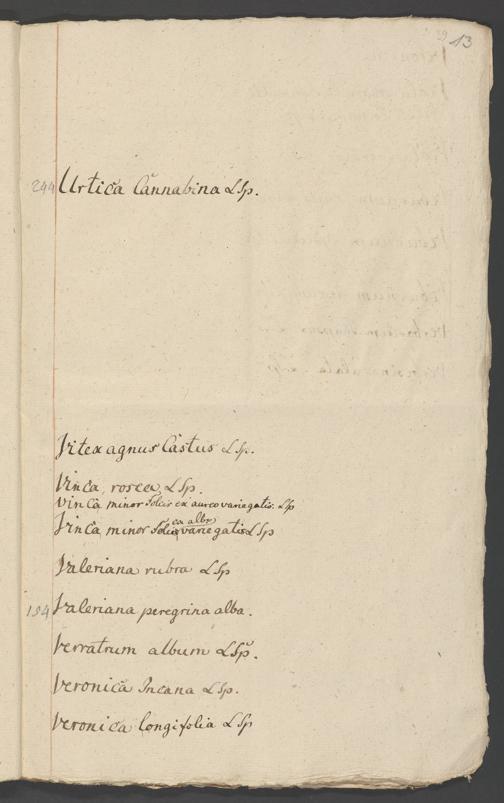 29 13
244 Urtica Cannabina LSp.
Vitex agnus Castus LSp.
Vinca rosea LSp.
vinca minor foliis ex aureo variegatis. LSp
ex albo
Vinca minor foliis variegatis LSp
Valeriana rubra LSp
184 Valeriana peregrina alba.
Verratrum album LSp.
Veronica Incana LSp.
Veronica longifolia LSp